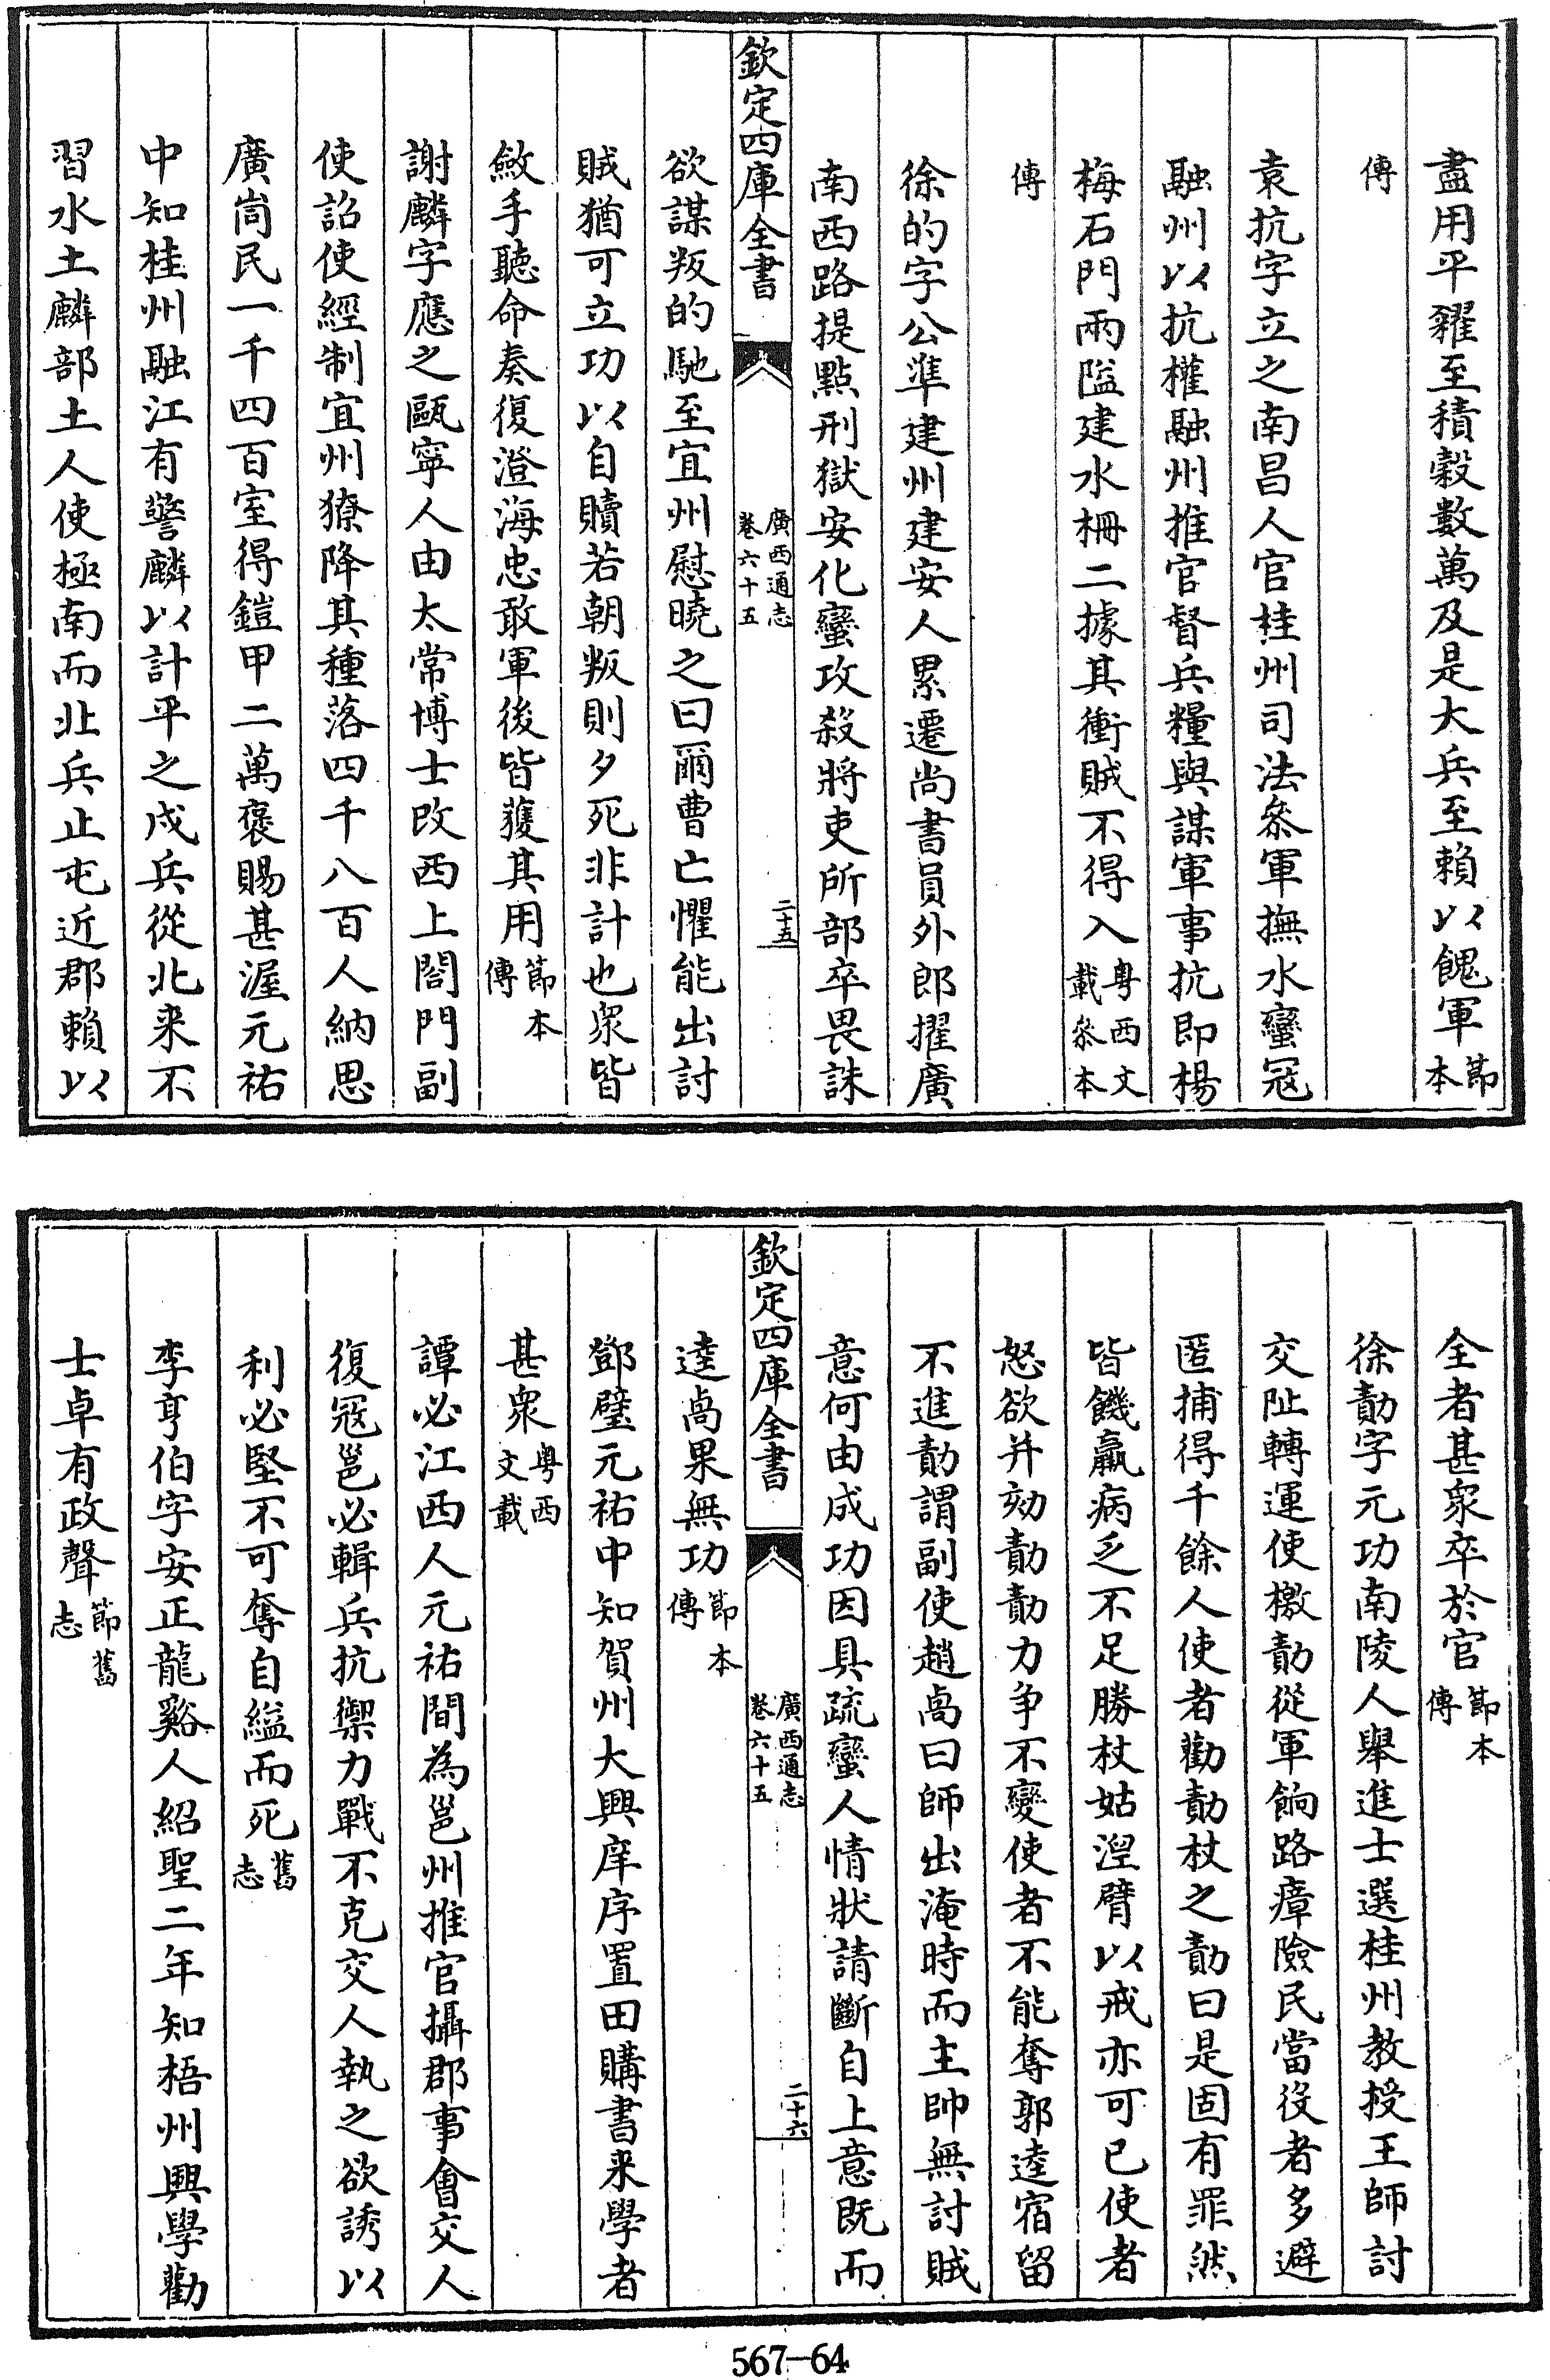 盡用平糴至積穀數萬及是大兵至賴以餽軍節本
傳
袁抗字立之南昌人官桂州司法叅軍撫水蠻冦
融州以抗權融州推官督兵糧與謀軍事抗即楊
梅石門兩隘建水柵二據其衝賊不得入粤西文載叅本
傳
徐的字公準建州建安人累遷尚書員外郎擢廣
南西路提點刑獄安化蠻攻殺將吏所部卒畏誅
欽定四庫全書 廣西通志卷六十五 二十五
欲謀叛的馳至宜州慰曉之曰爾曹亡懼能出討
賊猶可立功以自贖若朝叛則夕死非計也衆皆
斂手聽命奏復澄海忠敢軍後皆獲其用節本傳
謝麟字應之甌寧人由太常博士改西上閤門副
使詔使經制宜州獠降其種落四千八百人納思
廣峝民一千四百室得鎧甲二萬褒賜甚渥元祐
中知桂州融江有警麟以計平之戍兵從北来不
習水土麟部土人使極南而北兵止屯近郡賴以
全者甚衆卒於官節本傳
徐勣字元功南陵人舉進士選桂州教授王師討
交阯轉運使檄勣從軍餉路瘴險民當役者多避
匿捕得千餘人使者勸勣杖之勣曰是固有罪然
皆饑羸病乏不足勝杖姑湼臂以戒亦可已使者
怒欲并劾勣勣力争不變使者不能奪郭逵宿留
不進勣謂副使趙卨曰師出淹時而主帥無討賊
意何由成功因具疏蠻人情狀請斷自上意既而
欽定四庫全書 廣西通志卷六十五 二十六
逵卨果無功節本傳
鄧璧元祐中知賀州大興庠序置田購書来學者
甚衆粤西文載
譚必江西人元祐間為邕州推官攝郡事會交人
復冦邕必輯兵抗禦力戰不克交人執之欲誘以
利必堅不可奪自縊而死舊志
李亨伯字安正龍谿人紹聖二年知梧州興學勸
士卓有政聲節舊志
567-64